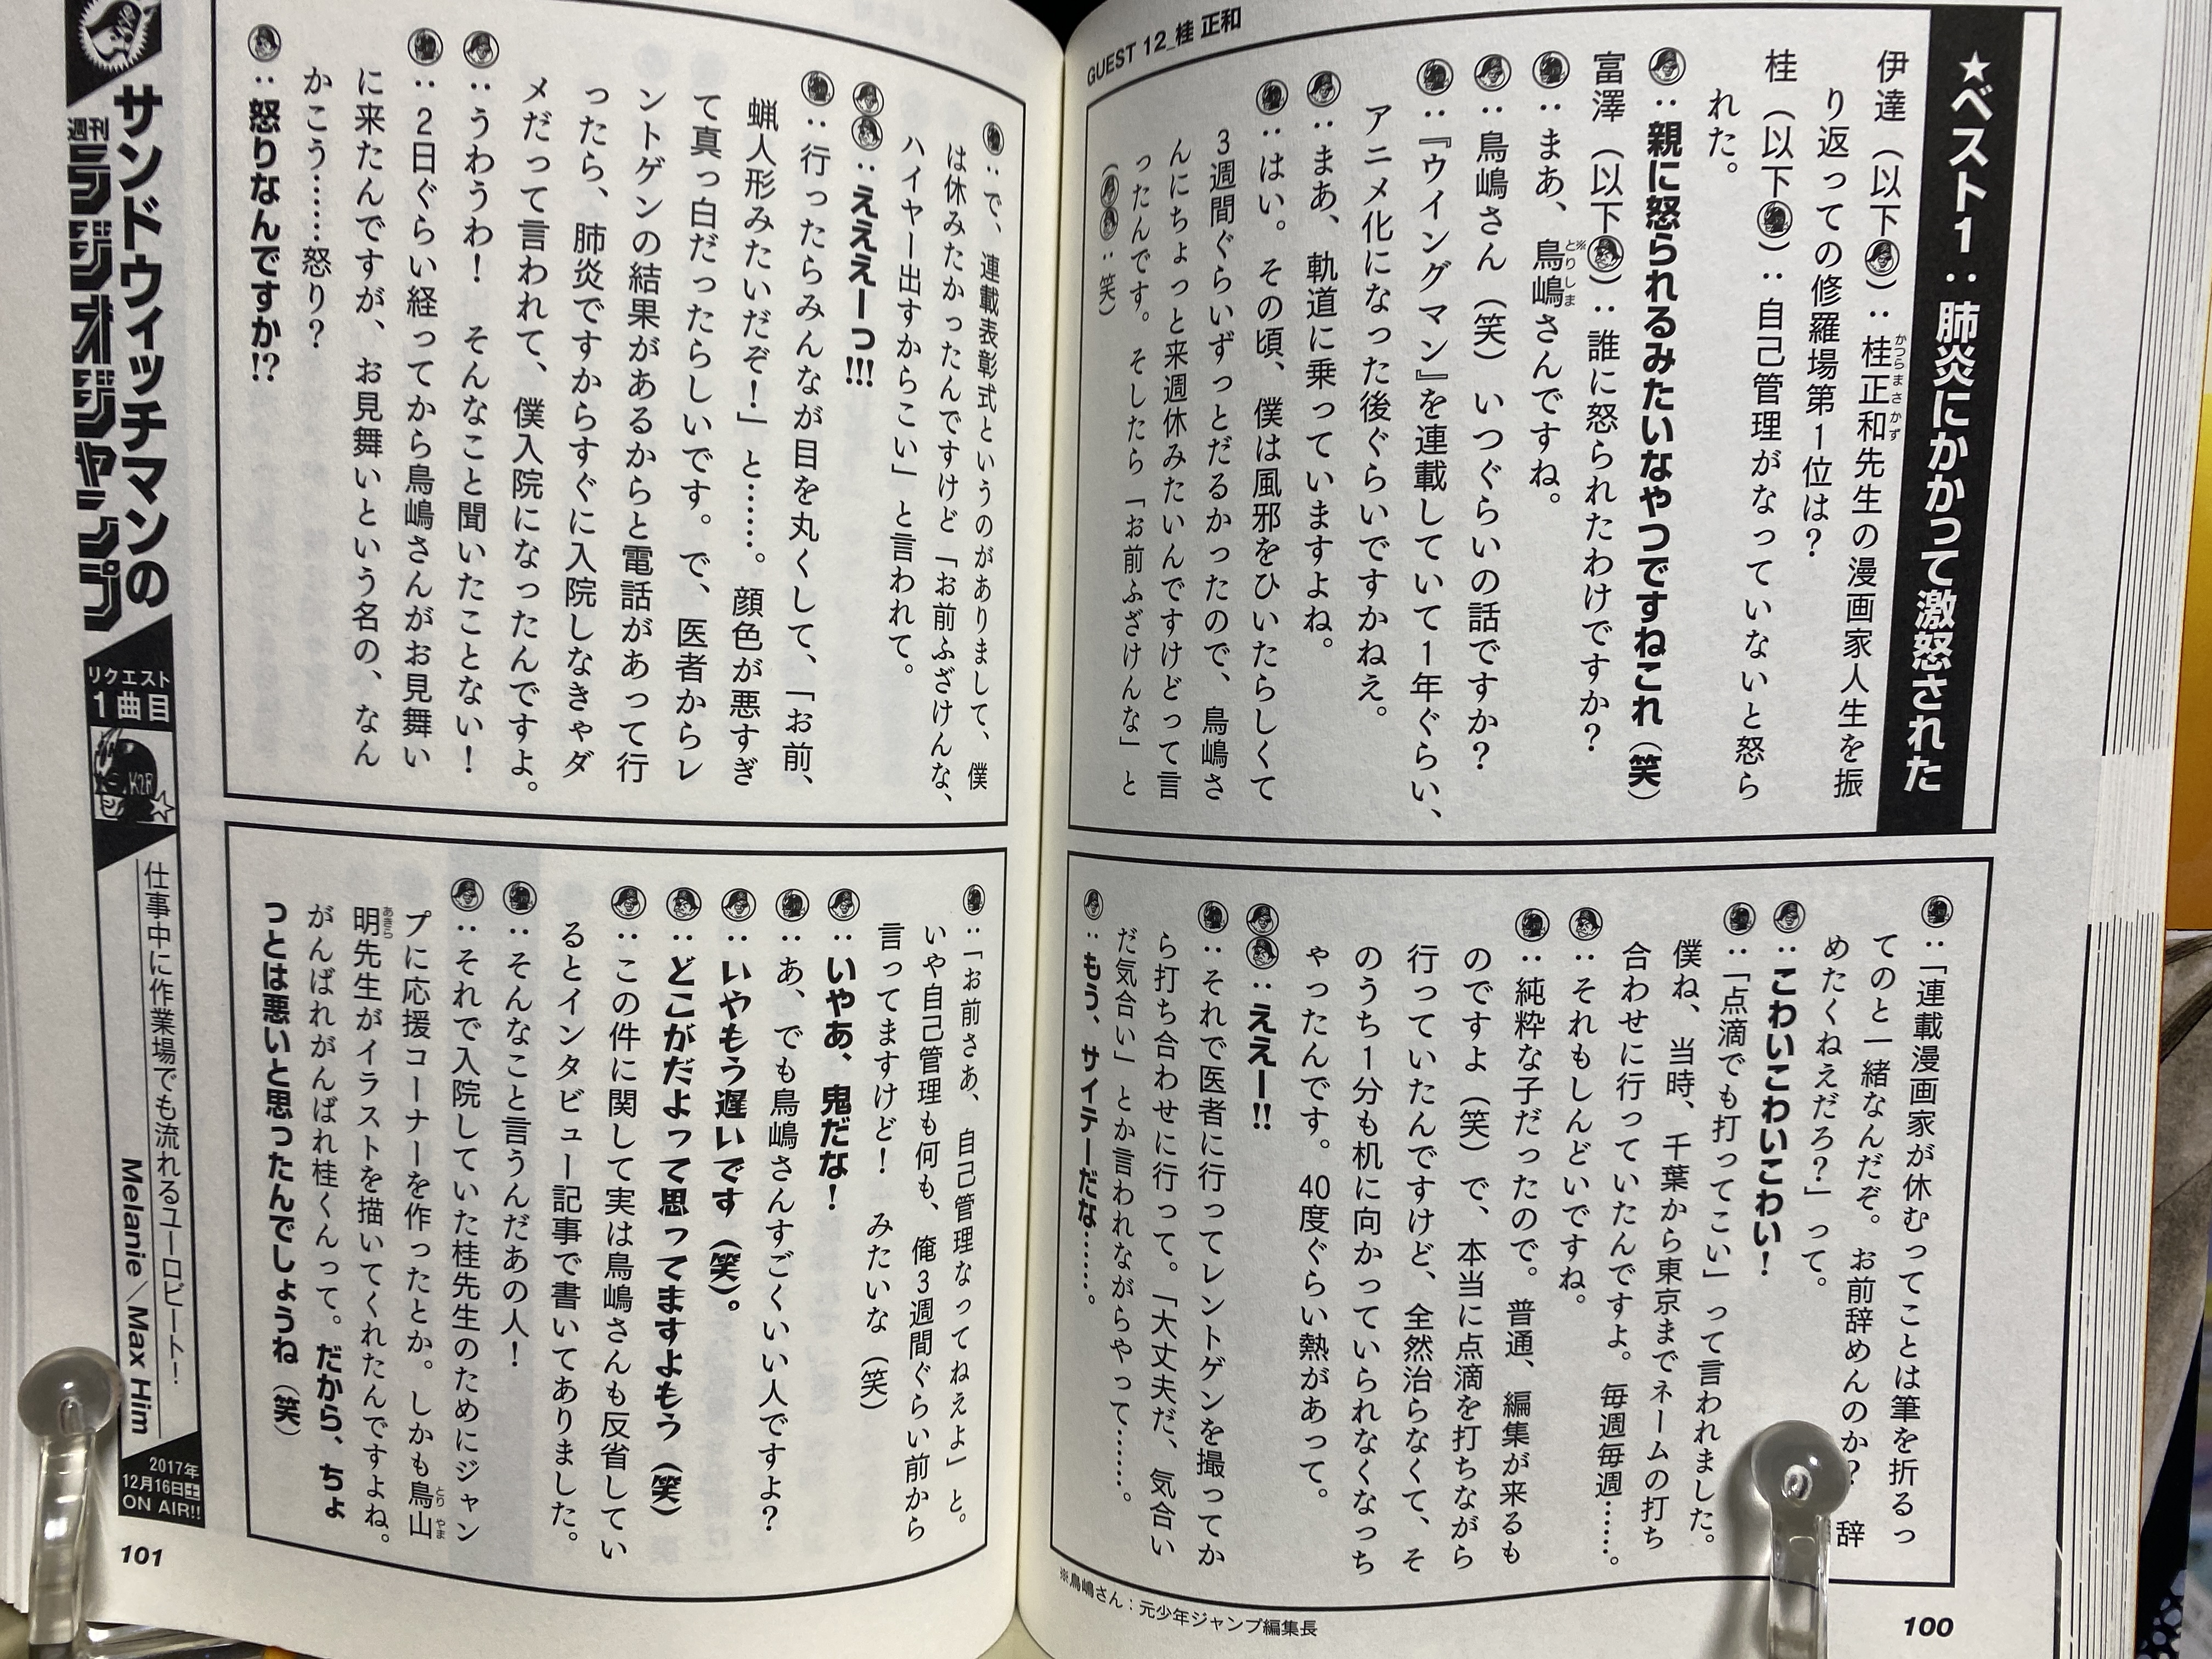 GUEST 12_桂 正和
★ベスト1：肺炎にかかって激怒された
伊達（以下）：桂正和先生の漫画家人生を振
り返っての修羅場第1位は？
桂（以下）：自己管理がなっていないと怒ら
れた。
：親に怒られるみたいなやつですねこれ（笑）
富澤（以下）：誰に怒られたわけですか？
：まあ、鳥嶋さんですね。
：鳥嶋さん（笑）いつぐらいの話ですか？
：『ウイングマン』を連載していて1年ぐらい、
アニメ化になった後ぐらいですかねえ。
：まあ、軌道に乗っていますよね。
：はい。その頃、僕は風邪をひいたらしくて
3週間ぐらいずっとだるかったので、鳥嶋さ
んにちょっと来週休みたいんですけどって言
ったんです。そしたら「お前ふざけんな」と
（：笑）
：「連載漫画家が休むってことは筆を折るっ
てのと一緒なんだぞ。お前辞めんのか？ 辞
めたくねえだろ？」って。
：こわいこわいこわい！
：「点滴でも打ってこい」って言われました。
僕ね、当時、千葉から東京までネームの打ち
合わせに行っていたんですよ。毎週毎週……。
：それもしんどいですね。
：純粋な子だったので。普通、編集が来るも
のですよ（笑）で、本当に点滴を打ちながら
行っていたんですけど、全然治らなくて、そ
のうち1分も机に向かっていられなくなっち
ゃったんです。40度ぐらい熱があって。
：ええー!!
：それで医者に行ってレントゲンを撮ってか
ら打ち合わせに行って。「大丈夫だ、気合い
だ気合い」とか言われながらやって……。
：もう、サイテーだな……。
※鳥嶋さん：元少年ジャンプ編集長
100
：で、連載表彰式というのがありまして、僕
は休みたかったんですけど「お前ふざけんな、
ハイヤー出すからこい」と言われて。
：えええーっ!!!
：行ったらみんなが目を丸くして、「お前、
蝋人形みたいだぞ！」と……。顔色が悪すぎ
て真っ白だったらしいです。で、医者からレ
ントゲンの結果があるからと電話があって行
ったら、肺炎ですからすぐに入院しなきゃダ
メだって言われて、僕入院になったんですよ。
：うわうわ！ そんなこと聞いたことない！
：2日ぐらい経ってから鳥嶋さんがお見舞い
に来たんですが、お見舞いという名の、なん
かこう……怒り？
：怒りなんですか!?
：「お前さあ、自己管理なってねえよ」と。
いや自己管理も何も、俺3週間ぐらい前から
言ってますけど！ みたいな（笑）
：いやあ、鬼だな！
：あ、でも鳥嶋さんすごくいい人ですよ？
：いやもう遅いです（笑）。
：どこがだよって思ってますよもう（笑）
：この件に関して実は鳥嶋さんも反省してい
るとインタビュー記事で書いてありました。
：そんなこと言うんだあの人！
：それで入院していた桂先生のためにジャン
プに応援コーナーを作ったとか。しかも鳥山
明先生がイラストを描いてくれたんですよね。
がんばれがんばれ桂くんって。だから、ちょ
っとは悪いと思ったんでしょうね（笑）
サンドウィッチマンの
週刊ラジオジャンプ
リクエスト
1曲目
K2R
仕事中に作業場でも流れるユーロビート！
Melanie／Max Him
2017年
12月16日土
ON AIR!!
101